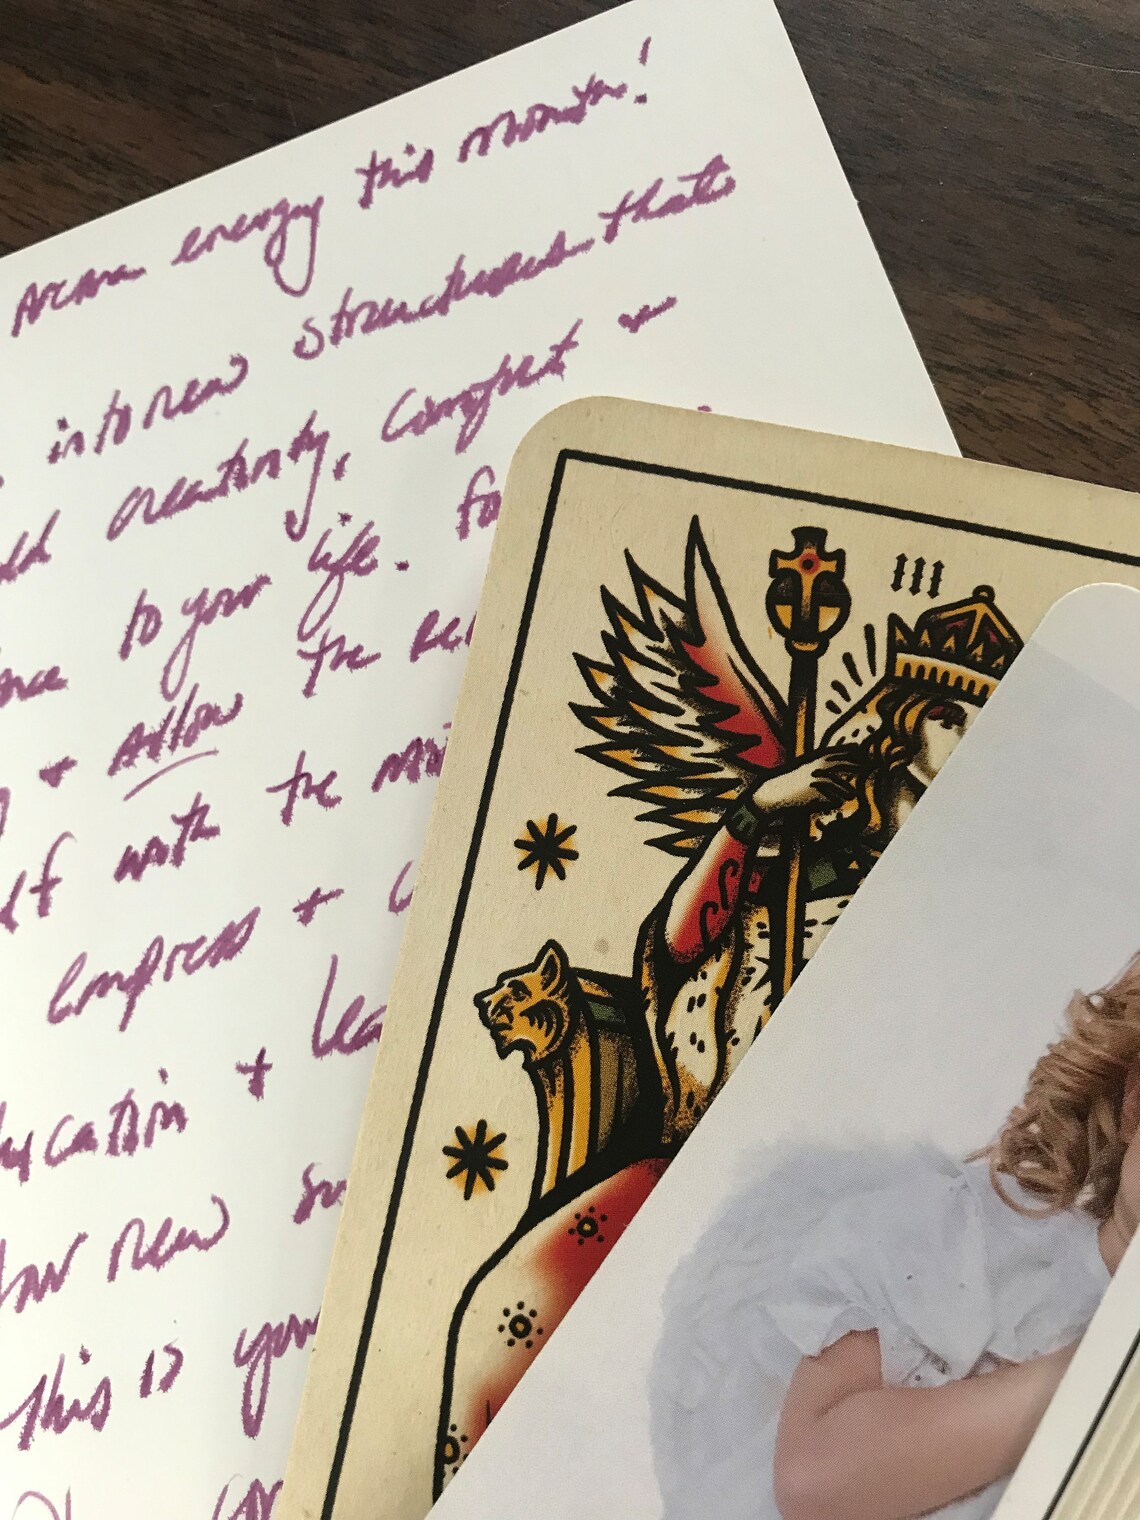 Arcana energy this month!
into new structures that
creativity, comfort +
to your life. Fo
+ Allow the re
lf with the
Empress +
ucation + Lea
for new su
This is you
III